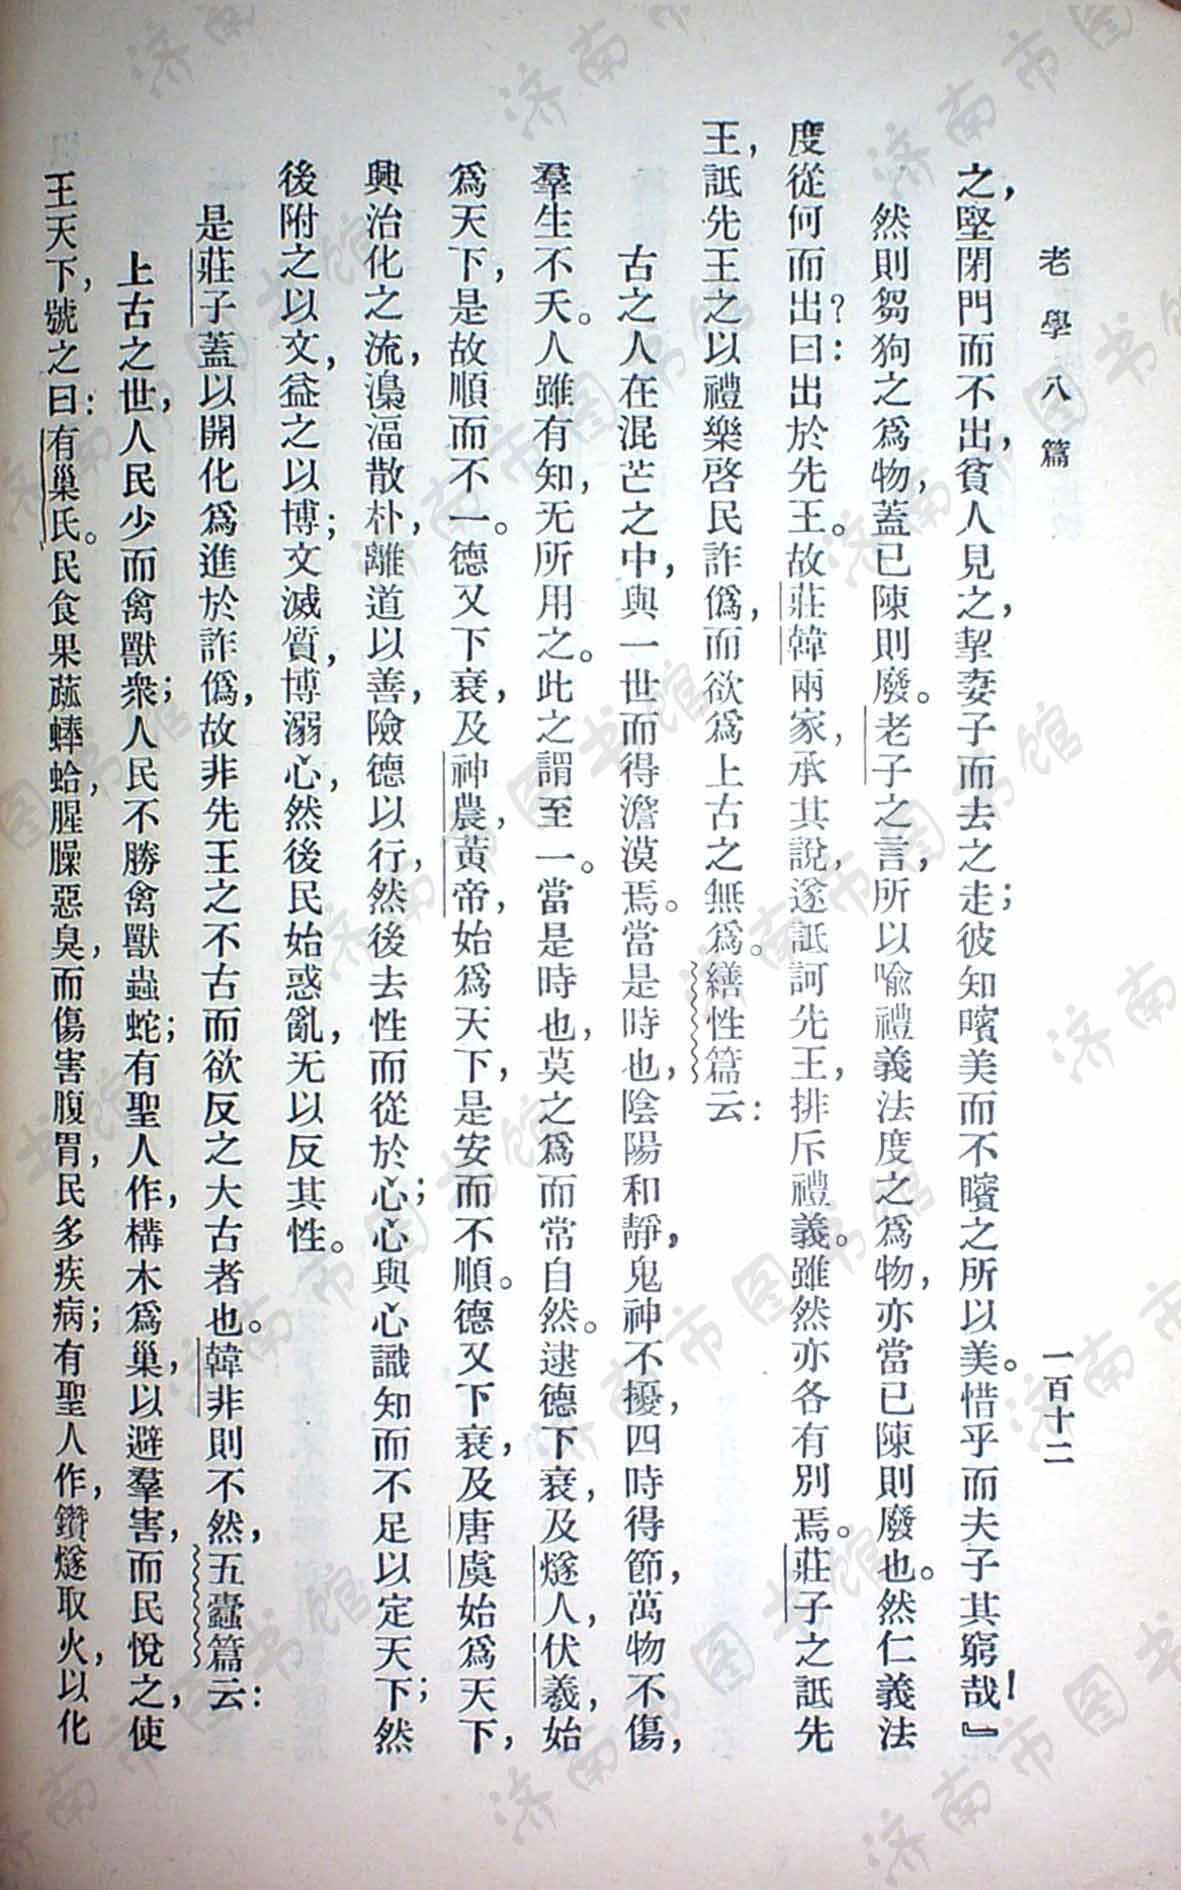 老學八篇
一百十二
之，堅閉門而不出，貧人見之，挈妻子而去之走；彼知矉美而不矉之所以美。惜乎而夫子其窮哉！』
然則芻狗之爲物，蓋已陳則廢。老子之言，所以喻禮義法度之爲物，亦當已陳則廢也。然仁義法
度從何而出？曰：出於先王。故莊韓兩家，承其說，遂詆訶先王，排斥禮義。雖然亦各有別焉。莊子之詆先
王，詆先王之以禮樂啓民詐僞，而欲爲上古之無爲。繕性篇云：
古之人在混芒之中，與一世而得澹漠焉。當是時也，陰陽和靜，鬼神不擾，四時得節，萬物不傷，
羣生不夭。人雖有知，无所用之。此之謂至一。當是時也，莫之爲而常自然。逮德下衰，及燧人，伏羲，始
爲天下，是故順而不一。德又下衰，及神農，黃帝，始爲天下，是安而不順。德又下衰，及唐虞始爲天下，
興治化之流，澆淳散朴，離道以善，險德以行，然後去性而從於心；心與心識知而不足以定天下；然
後附之以文，益之以博；文滅質，博溺心，然後民始惑亂，无以反其性。
是莊子蓋以開化爲進於詐僞，故非先王之不古而欲反之大古者也。韓非則不然，五蠹篇云：
上古之世，人民少而禽獸衆；人民不勝禽獸蟲蛇；有聖人作，構木爲巢，以避羣害，而民悅之，使
王天下，號之曰：有巢氏。民食果蓏蜯蛤，腥臊惡臭，而傷害腹胃，民多疾病；有聖人作，鑽燧取火，以化